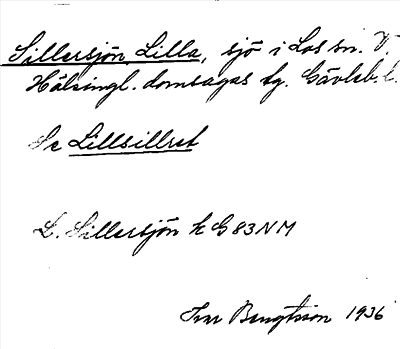 Sillersjön, Lilla, sjö i Los sn. V.
Hälsingl. domsagas tg. Gävleb. l.
Se Lillsillret
L. Sillersjön k G 83 NM
Ivar Bengtsson 1936